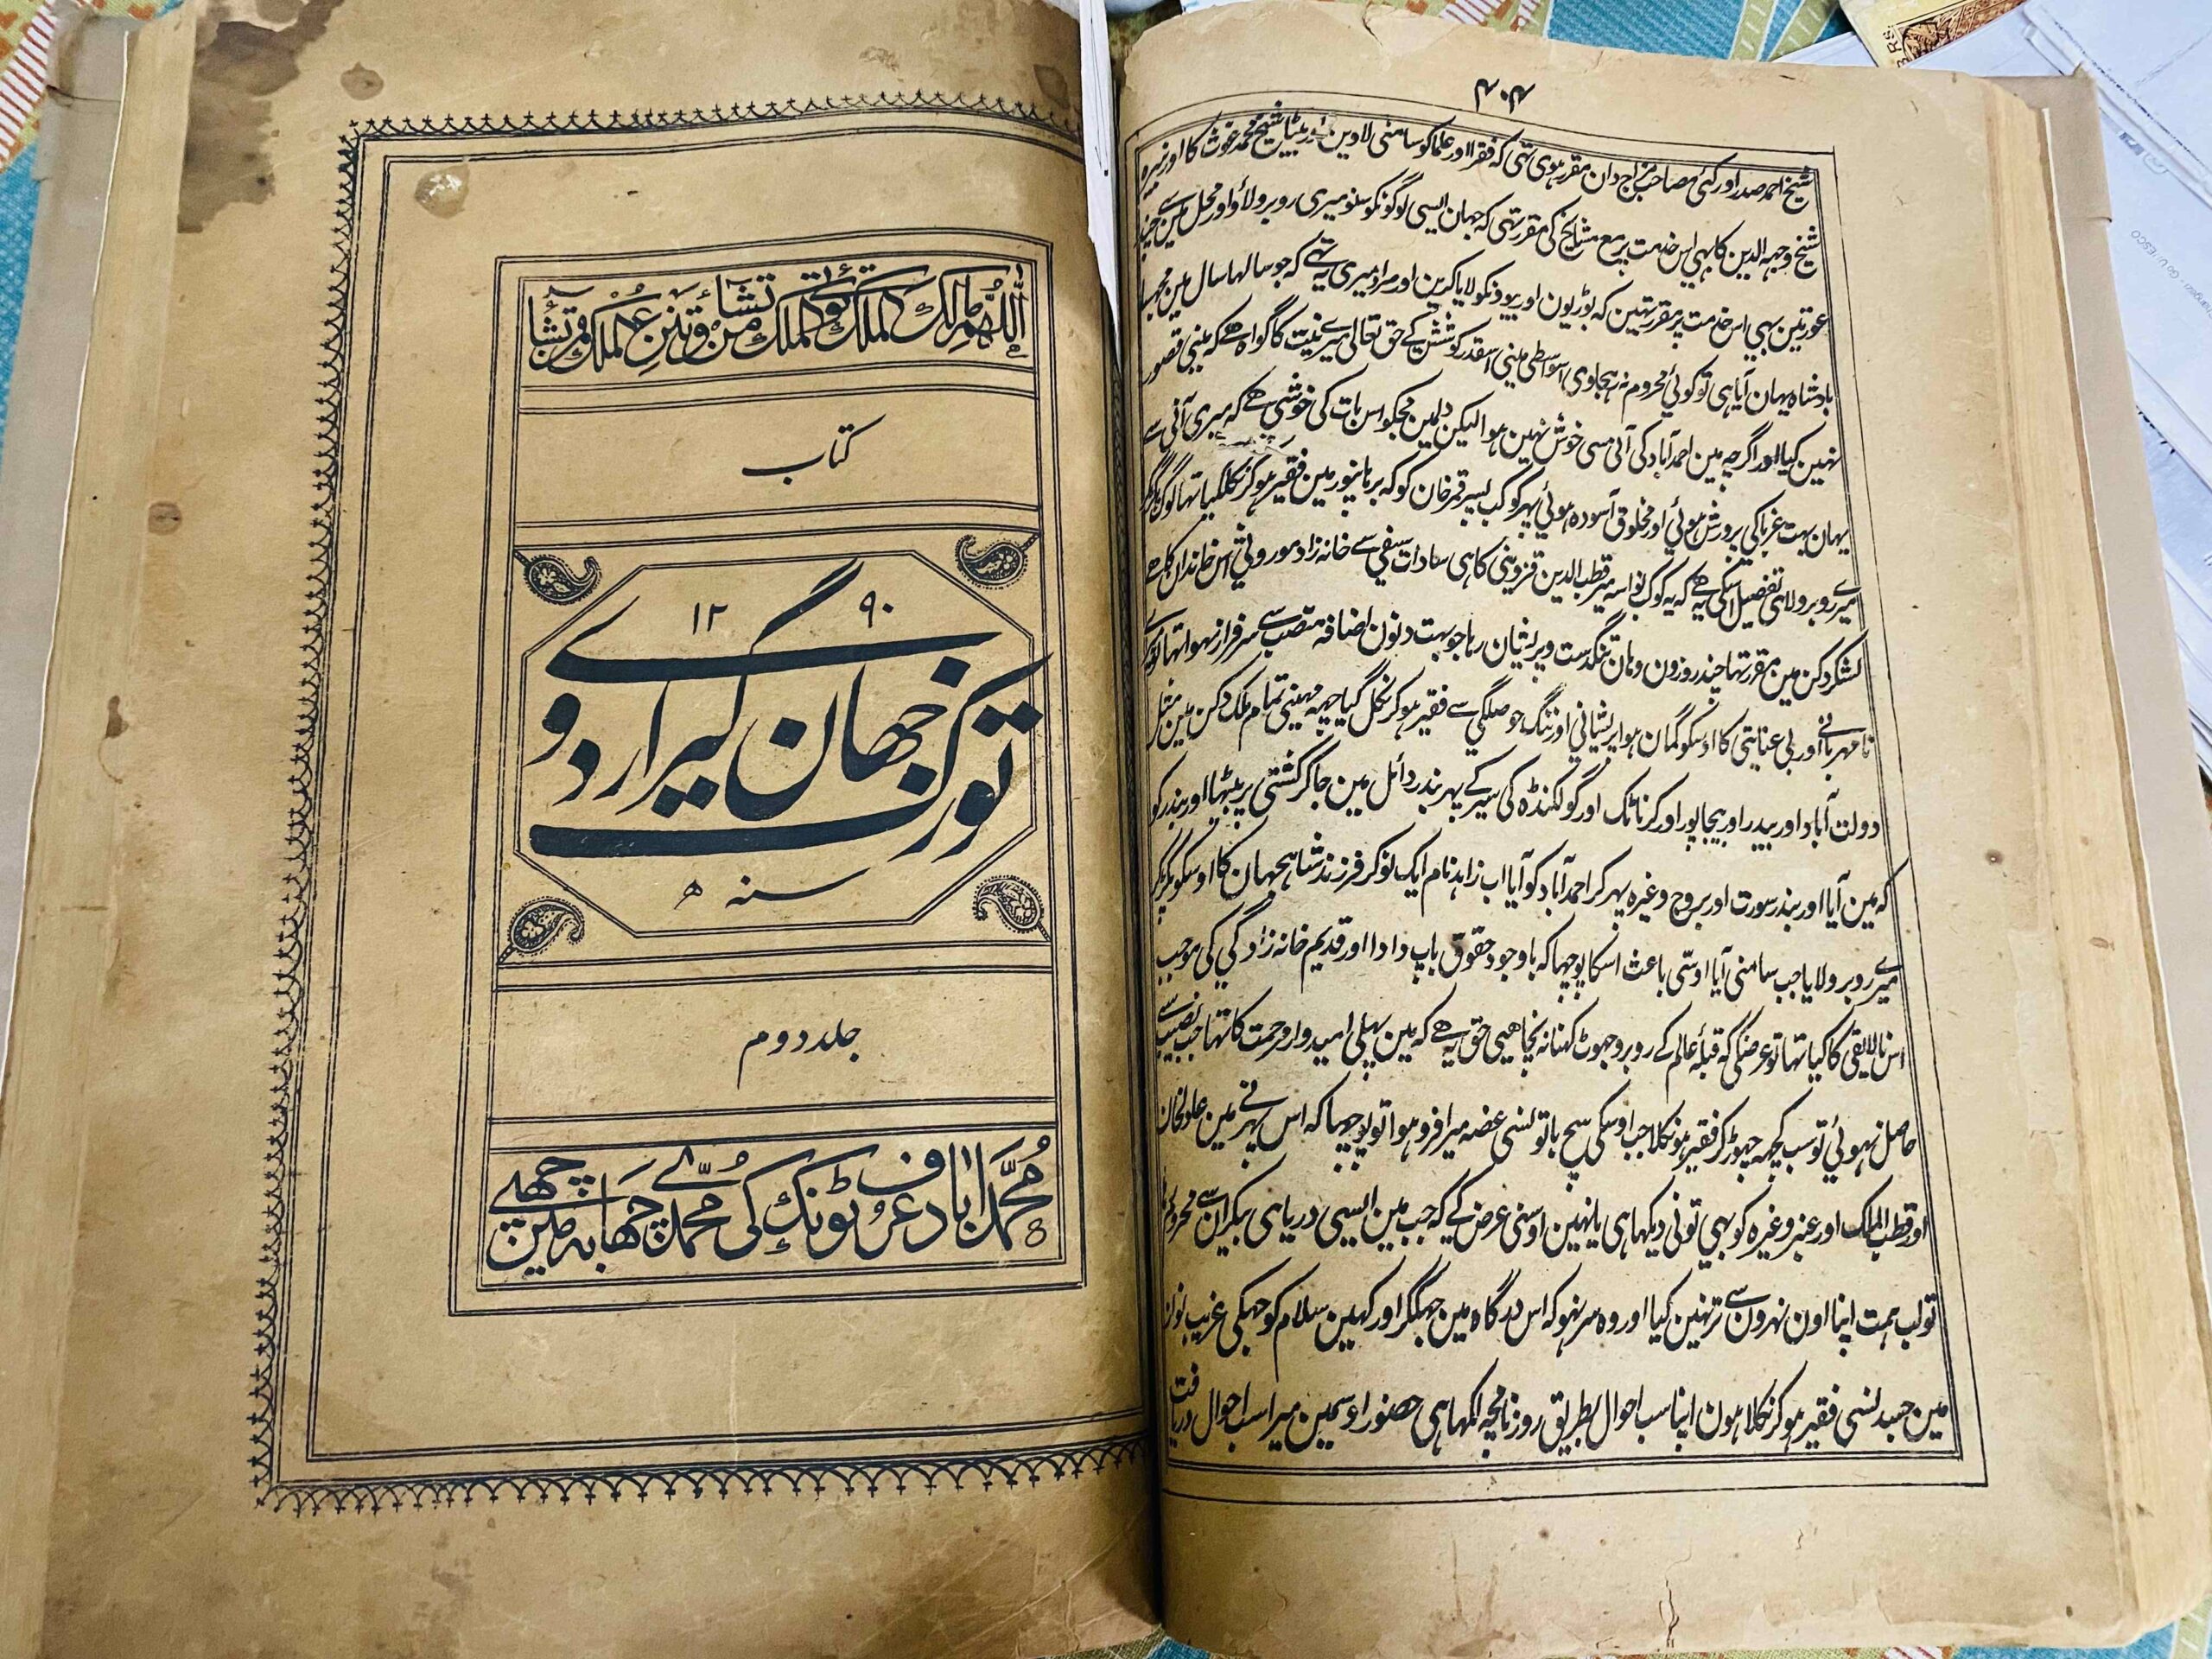 ۴۰۴
شیخ احمد صدر اور کئی مصاحب مزاجدان مقرر ہوی تہی کہ فقرا اور علما کو سامنی لاوین اور بیٹا شیخ محمد غوث کا اور نبیرہ
شیخ وجیہ الدین کا بہی اس خدمت پر مع مشایخ کی مقرر تہی کہ جہان ایسی لوگونکو سنو میری روبرو لاؤ اور محل مین سے چند
عورتین بہی اس خدمت پر مقرر تہین کہ بوڑیون اور بیوونکو لایا کرین اور مراد میری یہ تہے کہ جو سالہا سال مین مجہسا
بادشاہ یہان آیا ہی تو کوئی محروم نہ رہجاوی اسواسطی مینی اسقدر کوشش کے حق تعالی میرے نیت کا گواہ ہے کہ مینی قصور
نہین کیا اور اگرچہ مین احمدآباد کی آنی سی خوش نہین ہوا لیکن دلمین مجکو اس بات کی خوشی ہے کہ میری آنی سے
یہان بہت غربا کی پرورش ہوئی اور مخلوق آسودہ ہوئی پہر کوکب پسر قمر خان کو کہ برہانپور مین فقیر ہو کر نکلگیا تہا لوگ پکڑکر
میرے روبرو لائی تفصیل اسکی یہ ہے کہ یہ کوکب نواسہ میر قطب الدین قزوینی کا ہی سادات سیفی سے خانہ زاد موروثی اس خاندان کا ہے
لشکر دکن مین مقرر تہا چند روزون وہان تنگدست و پریشان رہا جو بہت دنون اضافہ منصب سے سرفراز نہوا تہا تو میرے
نامہربانی اور بی عنایتی کا اوسکو گمان ہوا پریشانی اور تنگ حوصلگی سے فقیر ہو کر نکل گیا چہہ مہینی تمام ملک دکن مین مثل
دولت آباد اور بیدر اور بیجاپور اور کرناٹک اور گولکنڈہ کی سیر کے پہر بندر دائل مین جا کر کشتی پر بیٹہا اور بندر کو
کہ مین آیا اور بندر سورت اور بروچ وغیرہ پہر کر احمدآباد کو آیا اب زاہد نام ایک نوکر فرزند شاہجہان کا اوسکو پکڑکر
میرے روبرو لایا جب سامنی آیا اوسی باعث اسکا پوچہا کہ باوجود حقوق باپ دادا اور قدیم خانہ زادگی کی موجب
اس نالایقی کا کیا تہا تو عرض کی کہ قبلہ عالم کے روبرو جہوٹ کہنا نہ چاہیی حق یہ ہے کہ مین پہلی امیدوار مرحمت کا تہا جب نصیب سے
حاصل نہوئی تو سب کچہہ چہوڑ کر فقیر ہو نکلا جب اوسکی سچ باتونسی غصہ میرا فرو ہوا تو پوچہا کہ اس پہرنے مین عادلخان
اور قطب الملک اور عنبر وغیرہ کو بہی تونی دیکہا ہی یا نہین اوسنی عرض کے کہ جب مین ایسی دریا ہی بیکران سے محروم رہا
تو لب ہمت اپنا اون نہرون سے تر نہین کیا اور وہ سر نہو کہ اس درگاہ مین جہکگر اور کہین سلام کو جہکی غریب نواز
مین جسدنسی فقیر ہو کر نکلا ہون اپنا سب احوال بطریق روزنامچہ لکہا ہی حضور اوسمین میرا سب احوال دریافت
اللّٰهُمَّ مالك الملك تؤتى الملك من تشاء و تنزع الملك ممن تشاء
كتاب
۱۲ ۹۰
توزک جهان گیرے اردو
سنه ه
جلد دوم
مُحمّد اباد عرف ٹونک کی محمدی چھاپہ مین چھپے